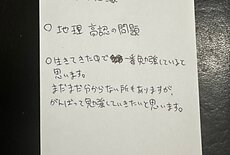 ○ 地理 高認の問題
○生きてきた中で一番勉強していると
思います。
まだまだ分からない所もありますが、
がんばって勉強していきたいと思います。